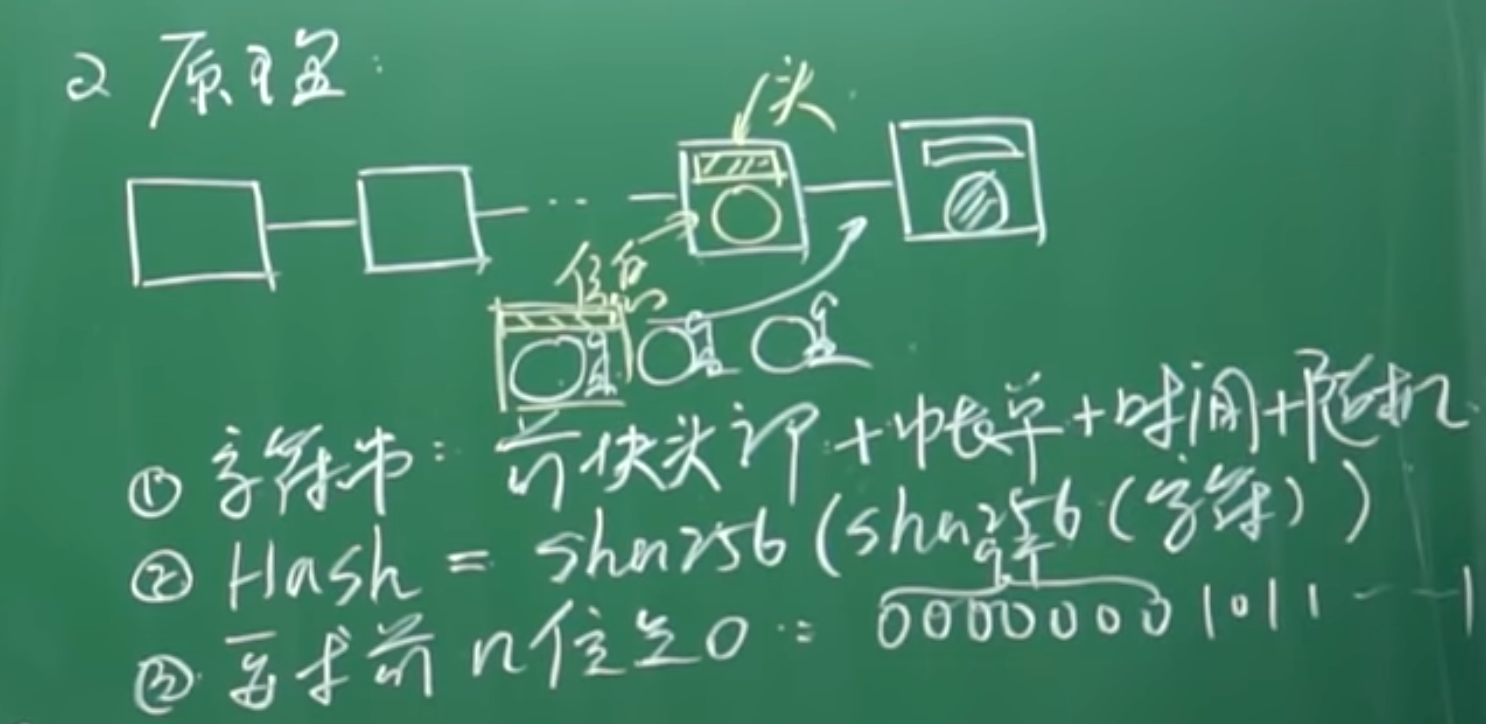 2 原理:
头
信息
① 字符串: 前块头部+帐单+时间+随机
② Hash = sha256(sha256(字符))
③ 要求前n位是0: 00000001011 — — 1